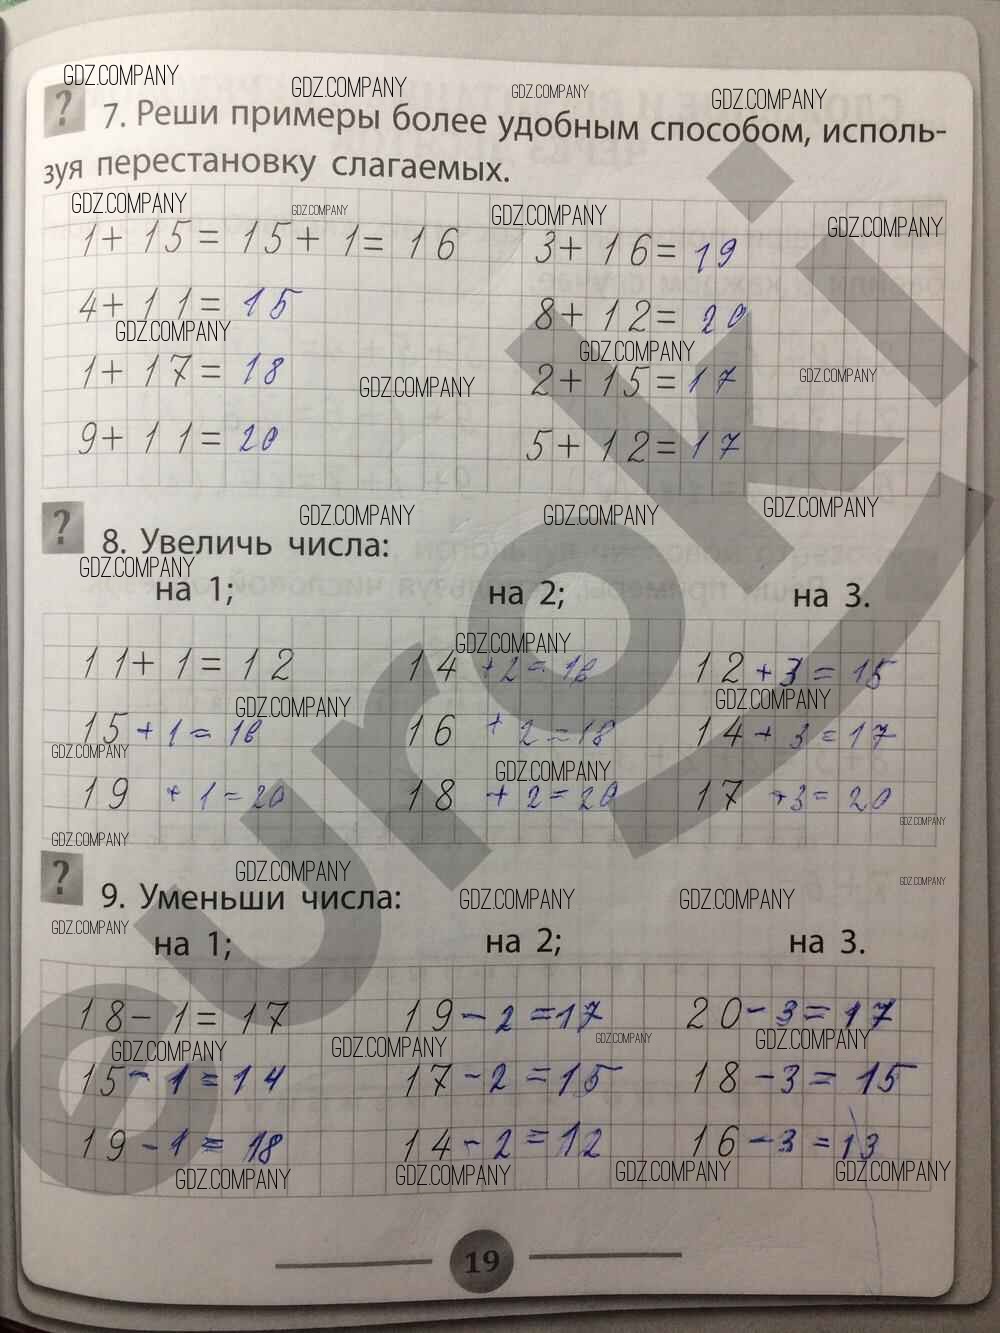 GDZ.COMPANY GDZ.COMPANY GDZ.COMPANY GDZ.COMPANY
? 7. Реши примеры более удобным способом, исполь-
зуя перестановку слагаемых.
GDZ.COMPANY GDZ.COMPANY GDZ.COMPANY GDZ.COMPANY
1+ 15= 15+ 1= 16 3+ 16= 19
4+ 11= 15 8+ 12= 20
GDZ.COMPANY GDZ.COMPANY
1+ 17= 18 2+ 15= 17
GDZ.COMPANY GDZ.COMPANY
9+ 11= 20 5+ 12= 17
GDZ.COMPANY GDZ.COMPANY GDZ.COMPANY
? 8. Увеличь числа:
GDZ.COMPANY
на 1; на 2; на 3.
GDZ.COMPANY
11+ 1= 12 14 +2=16 12 +3= 15
GDZ.COMPANY GDZ.COMPANY
15 +1= 16 16 + 2=18 14+ 3=17
GDZ.COMPANY GDZ.COMPANY
19 + 1=20 18 + 2=20 17 +3= 20
GDZ.COMPANY GDZ.COMPANY
GDZ.COMPANY
? 9. Уменьши числа:
GDZ.COMPANY GDZ.COMPANY GDZ.COMPANY
GDZ.COMPANY
на 1; на 2; на 3.
18- 1= 17 19-2=17 20-3=17
GDZ.COMPANY GDZ.COMPANY GDZ.COMPANY GDZ.COMPANY
15- 1=14 17-2=15 18-3= 15
19-1= 18 14-2=12 16-3=13
GDZ.COMPANY GDZ.COMPANY GDZ.COMPANY GDZ.COMPANY
19
euroki